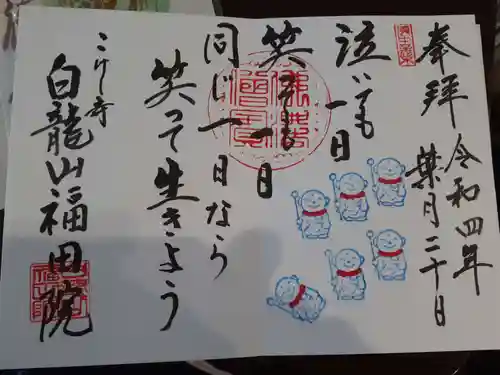 奉拝
令和四年
葉月二十日
泣いても一日
笑っても一日
同じ一日なら
笑って生きよう
こけ寺
白龍山福田院